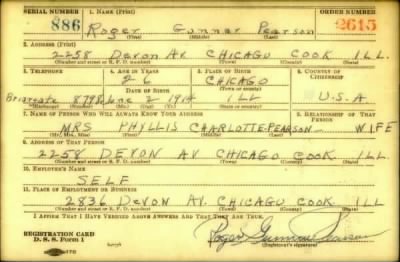 SERIAL NUMBER 1. NAME (Print) ORDER NUMBER
886 Roger Gunnar Pearson 2615
(First) (Middle) (Last)
2. ADDRESS (Print)
2258 Devon Av CHICAGO COOK ILL.
(Number and street or R. F. D. number) (Town) (County) (State)
3. TELEPHONE 4. AGE IN YEARS 5. PLACE OF BIRTH 6. COUNTRY OF CITIZENSHIP
26 CHICAGO
DATE OF BIRTH (Town or county)
Briargate 8798 June 2 1914 ILL U.S.A
(Exchange) (Number) (Mo.) (Day) (Yr.) (State or country)
7. NAME OF PERSON WHO WILL ALWAYS KNOW YOUR ADDRESS 8. RELATIONSHIP OF THAT PERSON
MRS PHYLLIS CHARLOTTE-PEARSON WIFE
(Mr., Mrs., Miss) (First) (Middle) (Last)
9. ADDRESS OF THAT PERSON
2258 DEVON AV CHICAGO COOK ILL.
(Number and street or R. F. D. number) (Town) (County) (State)
10. EMPLOYER'S NAME
SELF
11. PLACE OF EMPLOYMENT OR BUSINESS
2836 DEVON AV. CHICAGO COOK ILL
(Number and street or R. F. D. number) (Town) (County) (State)
I AFFIRM THAT I HAVE VERIFIED ABOVE ANSWERS AND THAT THEY ARE TRUE.
REGISTRATION CARD
D. S. S. Form 1 Roger Gunnar Pearson
(Registrant's signature)